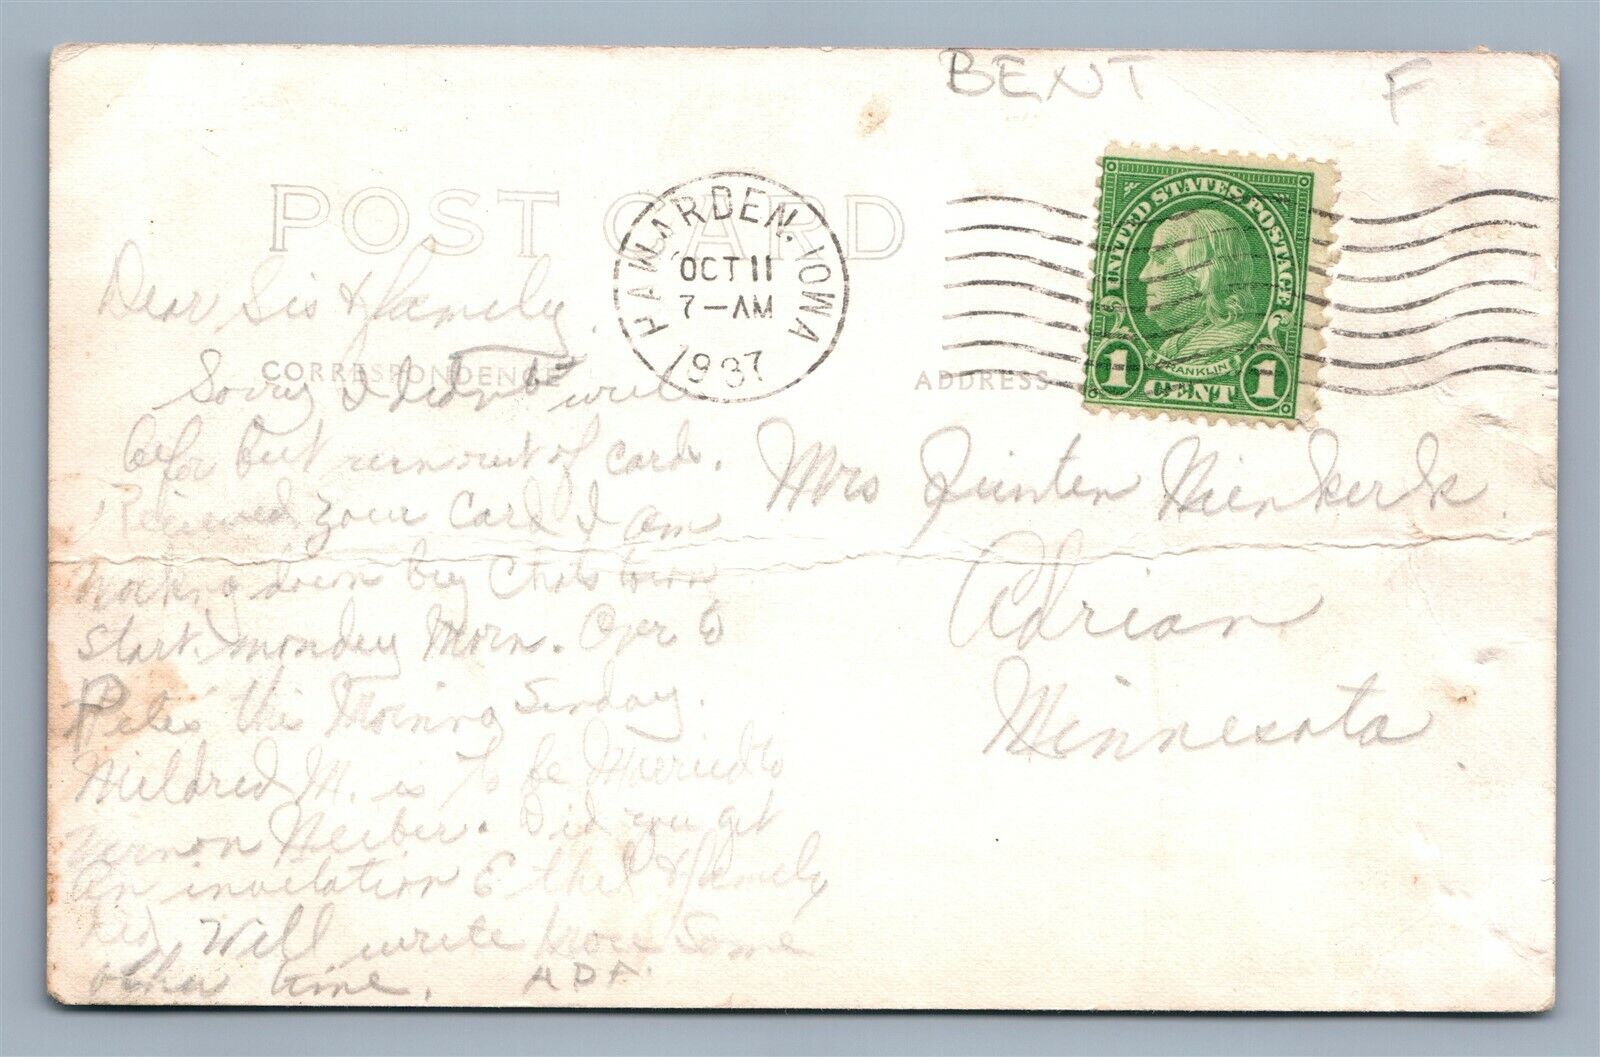 BENT F
POST CARD
HAWARDEN, IOWA
OCT 11
7-AM
1937
UNITED STATES POSTAGE
FRANKLIN
1 CENT 1
CORRESPONDENCE
ADDRESS
Dear Sis & family.
Sorry I didn't write
befor but run out of cards.
Recieved your card I am
down by
start monday Morn. Over to
Petes this Morning Sunday.
Mildred M. is to be Married to
Vernon Reiber. Did you get
An invitation Ethel & family
did. Will write more some
other time. ADF.
Mrs Quinten Nienkerk.
Adrian
Minnesota